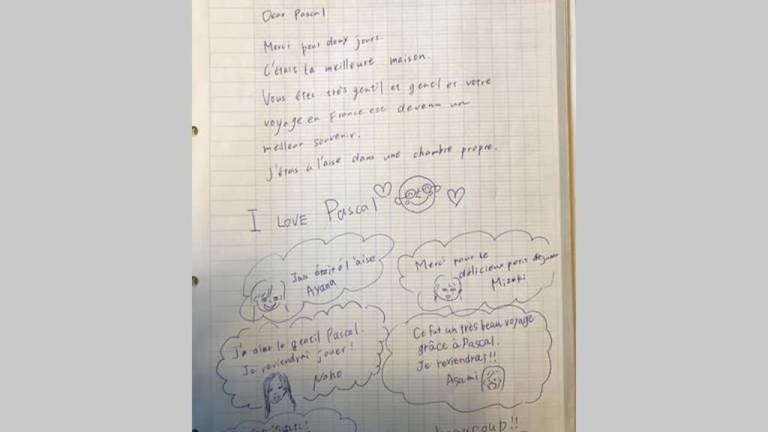 Dear Pascal
Merci pour deux jours.
C'était la meilleure maison.
Vous êtes très gentil et gentil et votre
voyage en France est devenu un
meilleur souvenir.
J'étais à l'aise dans une chambre propre.
I LOVE Pascal
était à l'aise
Ayana
Merci pour le
délicieux petit
Mizuki
J'ai aimé le gentil Pascal.
Je reviendrai jouer!
Naho
Ce fut un très beau voyage
grâce à Pascal.
Je reviendrai!!
Asami
beaucoup!!